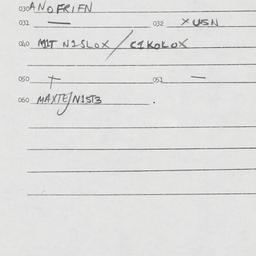 030 ANOFRIFN
031 — 032 XUSN
040 MIT NISLOX / CIKOLOX
050 + 051 —
060 MAXTEJNIST3 .